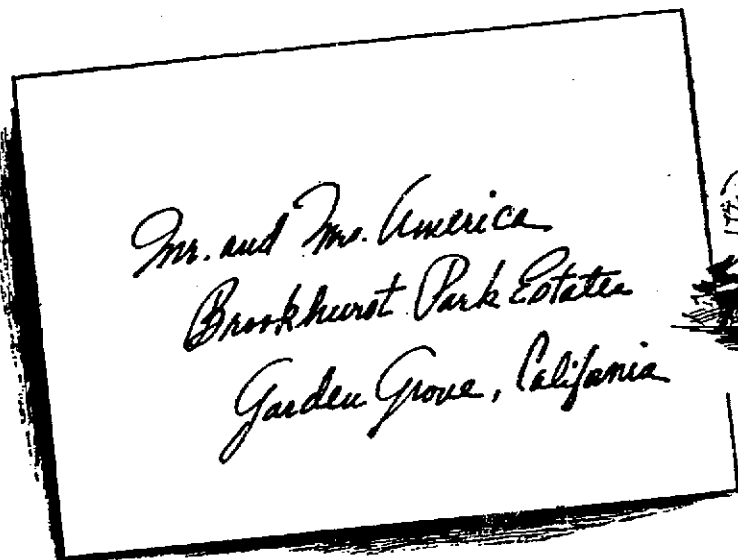 Mr. and Mrs. America
Brookhurst Park Estates
Garden Grove, California